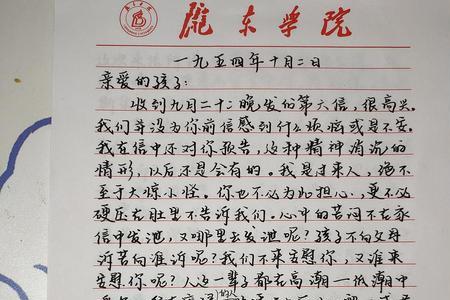 陇东学院
一九五四年十月二日
亲爱的孩子:
收到九月二十二晚发的第六信,很高兴。
我们并没为你前信感到什么烦恼或是不安。
我在信中还对你预告,这种精神消沉的
情形,以后还是会有的。我是过来人,决不
至于大惊小怪。你也不必为此担心,更不必
硬压在肚里不告诉我们。心中的苦闷不在家
信中发泄,又哪里去发泄呢?孩子不向父母
诉苦向谁诉呢?我们不来安慰你,又谁来
安慰你呢?人这一辈子都在高潮一低潮中
的人